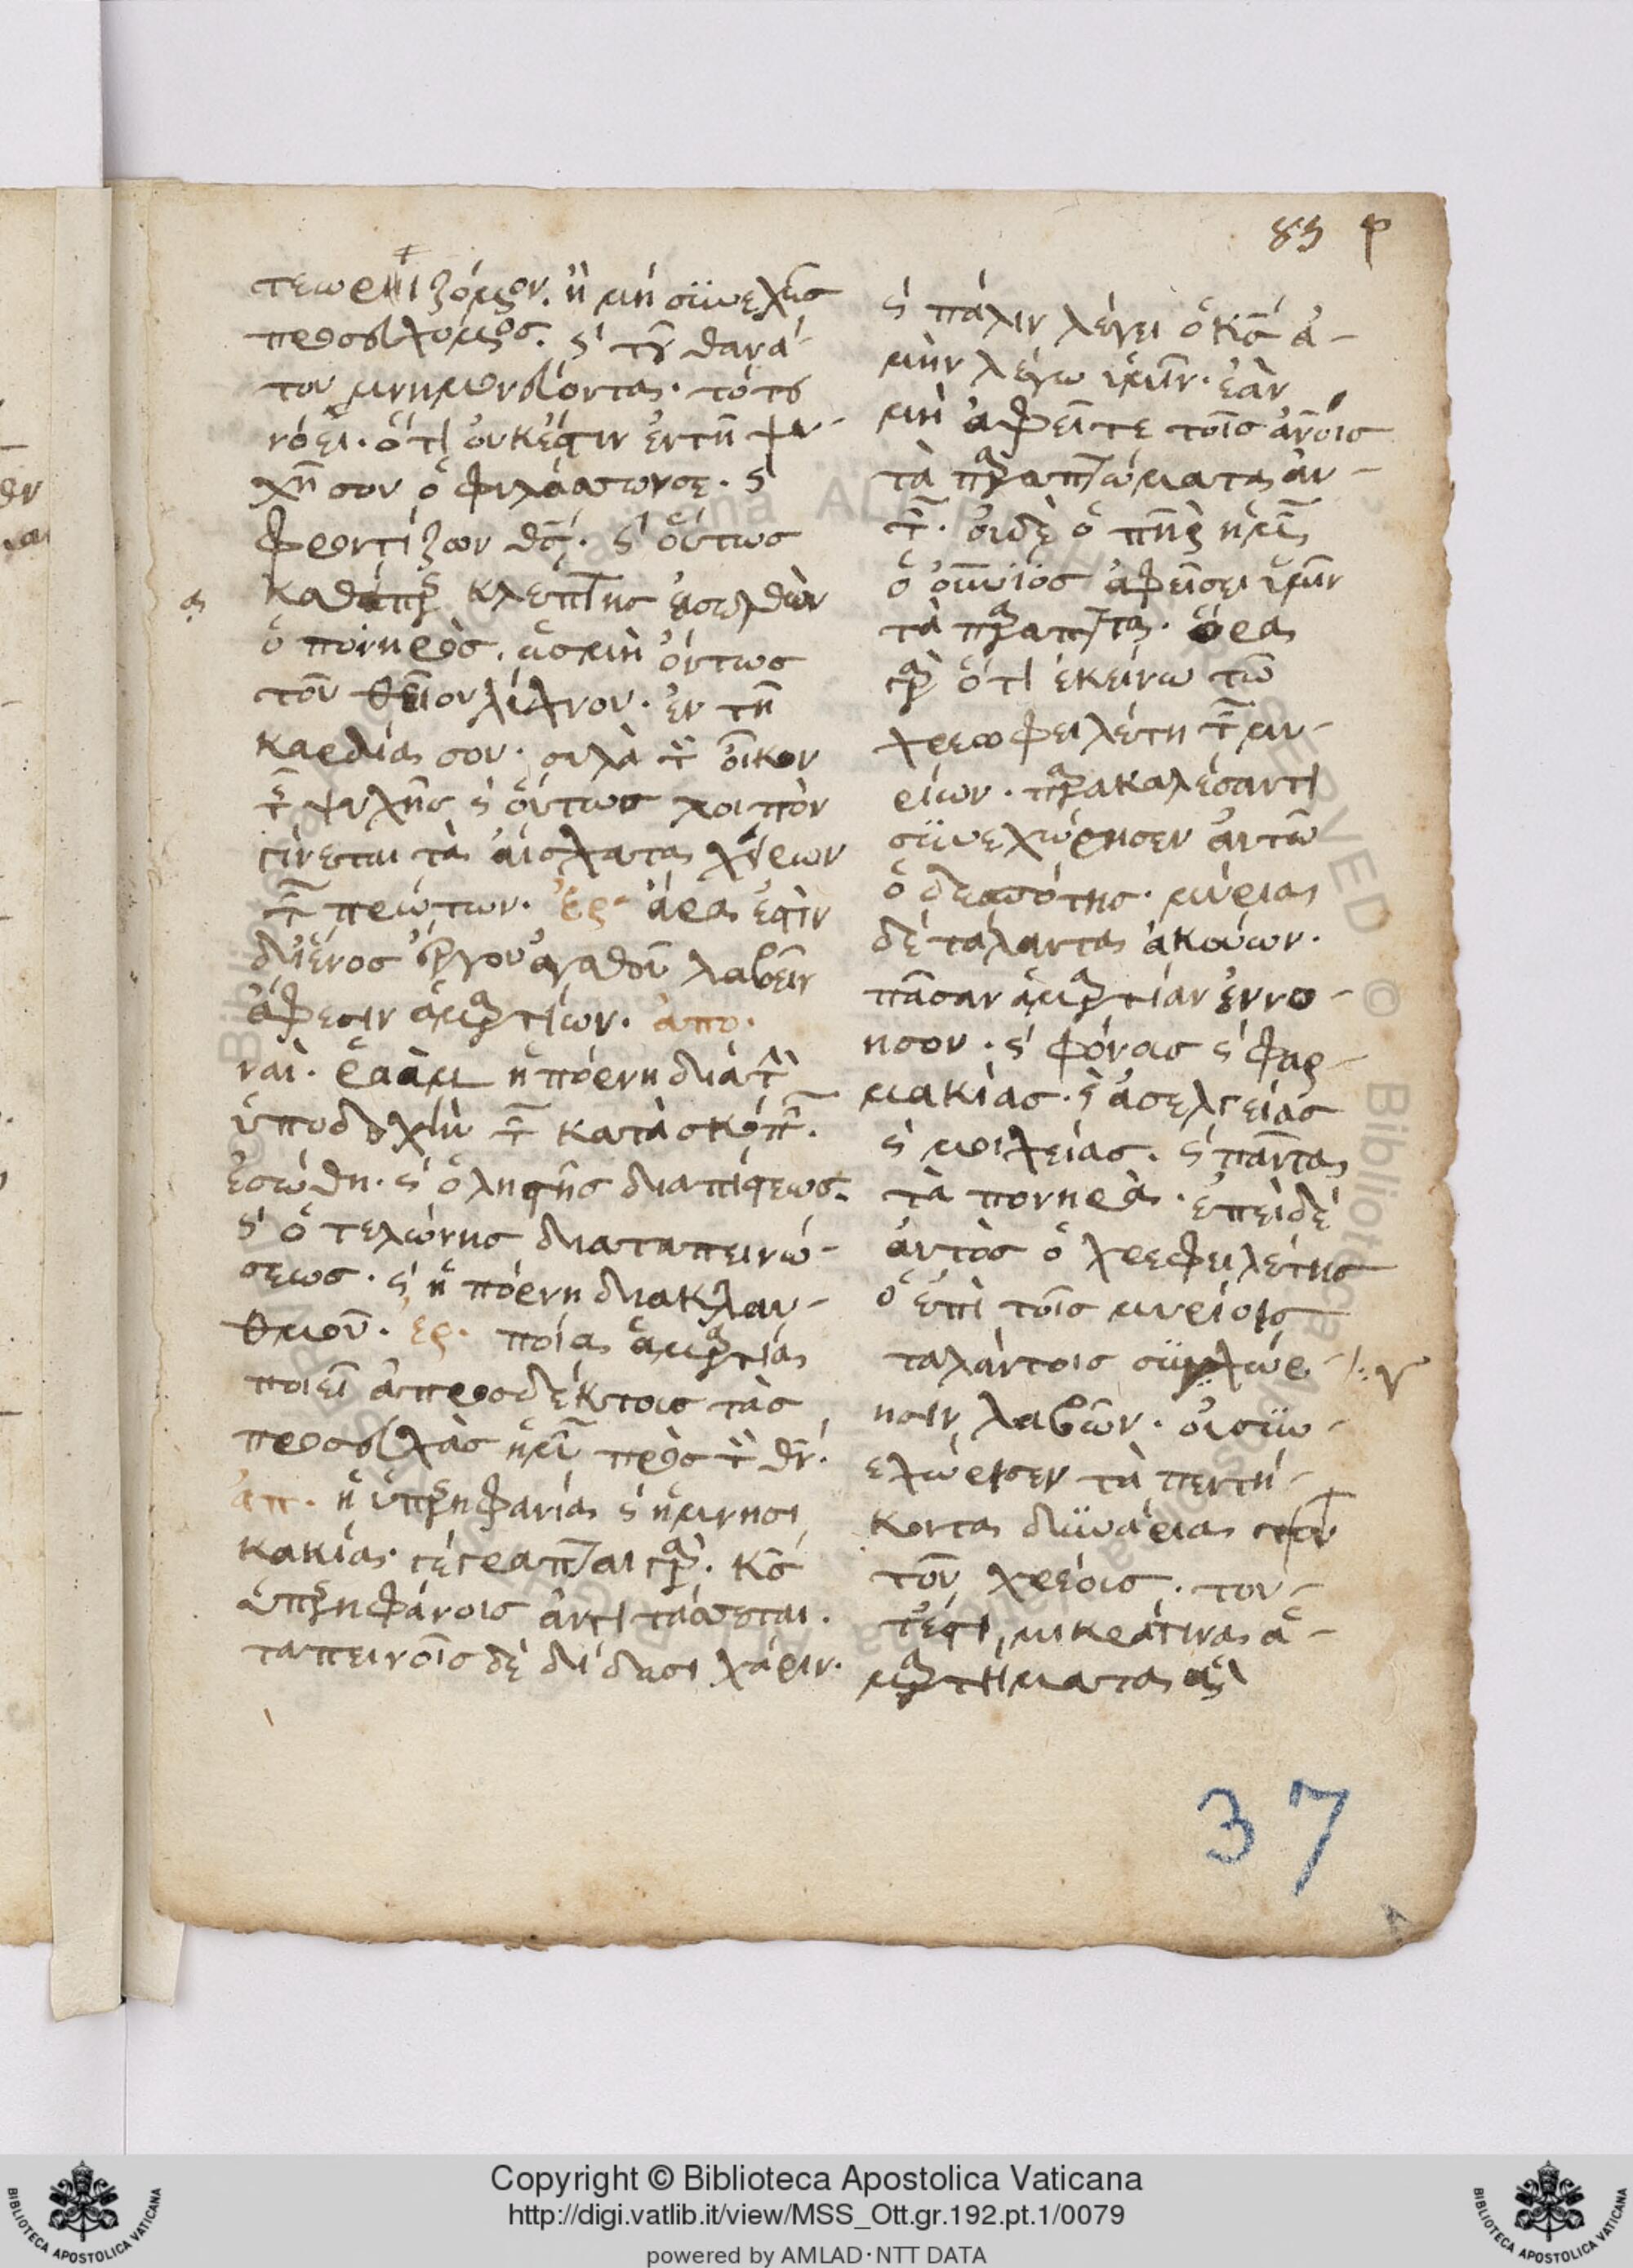 83 φ
τεωριζόμενον. ἢ μὴ συνεχῶς
προσευχόμενος. ϛ τοῦ θανά-
του μνημονεύοντα. τότε
νόει. ὅτι οὐκέστιν ἐν τῆ ψυ-
χῆ σου ὁ φυλάσσων σε. ϛ
φροντίζων θς. ϛ οὕτως
καθάπερ κλέπτης εἰσελθὼν
ὁ πονηρὸς.
τὸν θεῖον λύχνον. ἐν τῆ
καρδία σου. συλᾶ τὸν οἶκον
τῆς ψυχῆς ϛ οὕτως λοιπὸν
γίνεται τὰ ἔσχατα χείρων
τῶν πρώτων. ἐρ. ἆρα ἐστὶν
δι ἑνὸς ἔργου ἀγαθοῦ λαβεῖν
ἄφεσιν ἁμαρτιῶν. ἀπο.
ναὶ. ῥαὰμ ἡ πόρνη διὰ τὴν
ὑποδοχὴν τῶν κατασκόπων.
ἐσώθη. ϛ ὁ ληστὴς διαπίστεως.
ϛ ὁ τελώνης διαταπεινώ-
σεως. ϛ ἡ πόρνη διακλαυ-
θμοῦ. ἐρ. ποία ἁμαρτία
ποιεῖ ἀπροσδέκτοις τὰς
προσευχὰς ἡμῶν πρὸς τὸν θν.
ἀπ. ἡ ὑπερηφανία ϛ ἡ μνησι
κακία. γέγραπται γὰρ. κς
ὑπερηφάνοις ἀντιτάσσεται.
ταπεινοῖς δὲ δίδωσι χάριν.
ϛ πάλιν λέγει ὁ κς ἀ-
μὴν λέγω ὑμῖν. ἐὰν
μὴ ἀφεῖτε τοῖς ἀνοις
τὰ παραπτώματα αὐ-
τῶν. οὐδὲ ὁ πηρ ἡμῶν
ὁ οὐνιος ἀφείσει ὑμῖν
τὰ παραπτ τα. ὅρα
γὰρ ὅτι ἐκείνω τῶ
χρεοφειλέτη τῶν μυ-
ρίων. παρακαλέσαντι
συνεχώρησεν αὐτῶ
ὁ δεσπότης. μύρια
δὲ τάλαντα ἀκούων.
πᾶσαν ἁμαρτίαν ἐννό-
ησον. ϛ φόνας ϛ φαρ-
μακίας. ϛ ἀσελγείας
ϛ μοιχείας. ϛ πάντα
τὰ πονηρὰ. ἐπειδὲ
αὐτὸς ὁ χρεφειλέτης
ὁ ἐπὶ τοῖς μυρίοις
ταλάντοις συγχώρ-
ησιν λαβὼν. οὐ συν-
εχώρησεν τὰ πεντή-
κοντα δυνάρια
τοῦ χρέοις. του-
τέστι, μικρά τινα ἁ-
μαρτήματα
37
Copyright © Biblioteca Apostolica Vaticana
http://digi.vatlib.it/view/MSS_Ott.gr.192.pt.1/0079
powered by AMLAD·NTT DATA